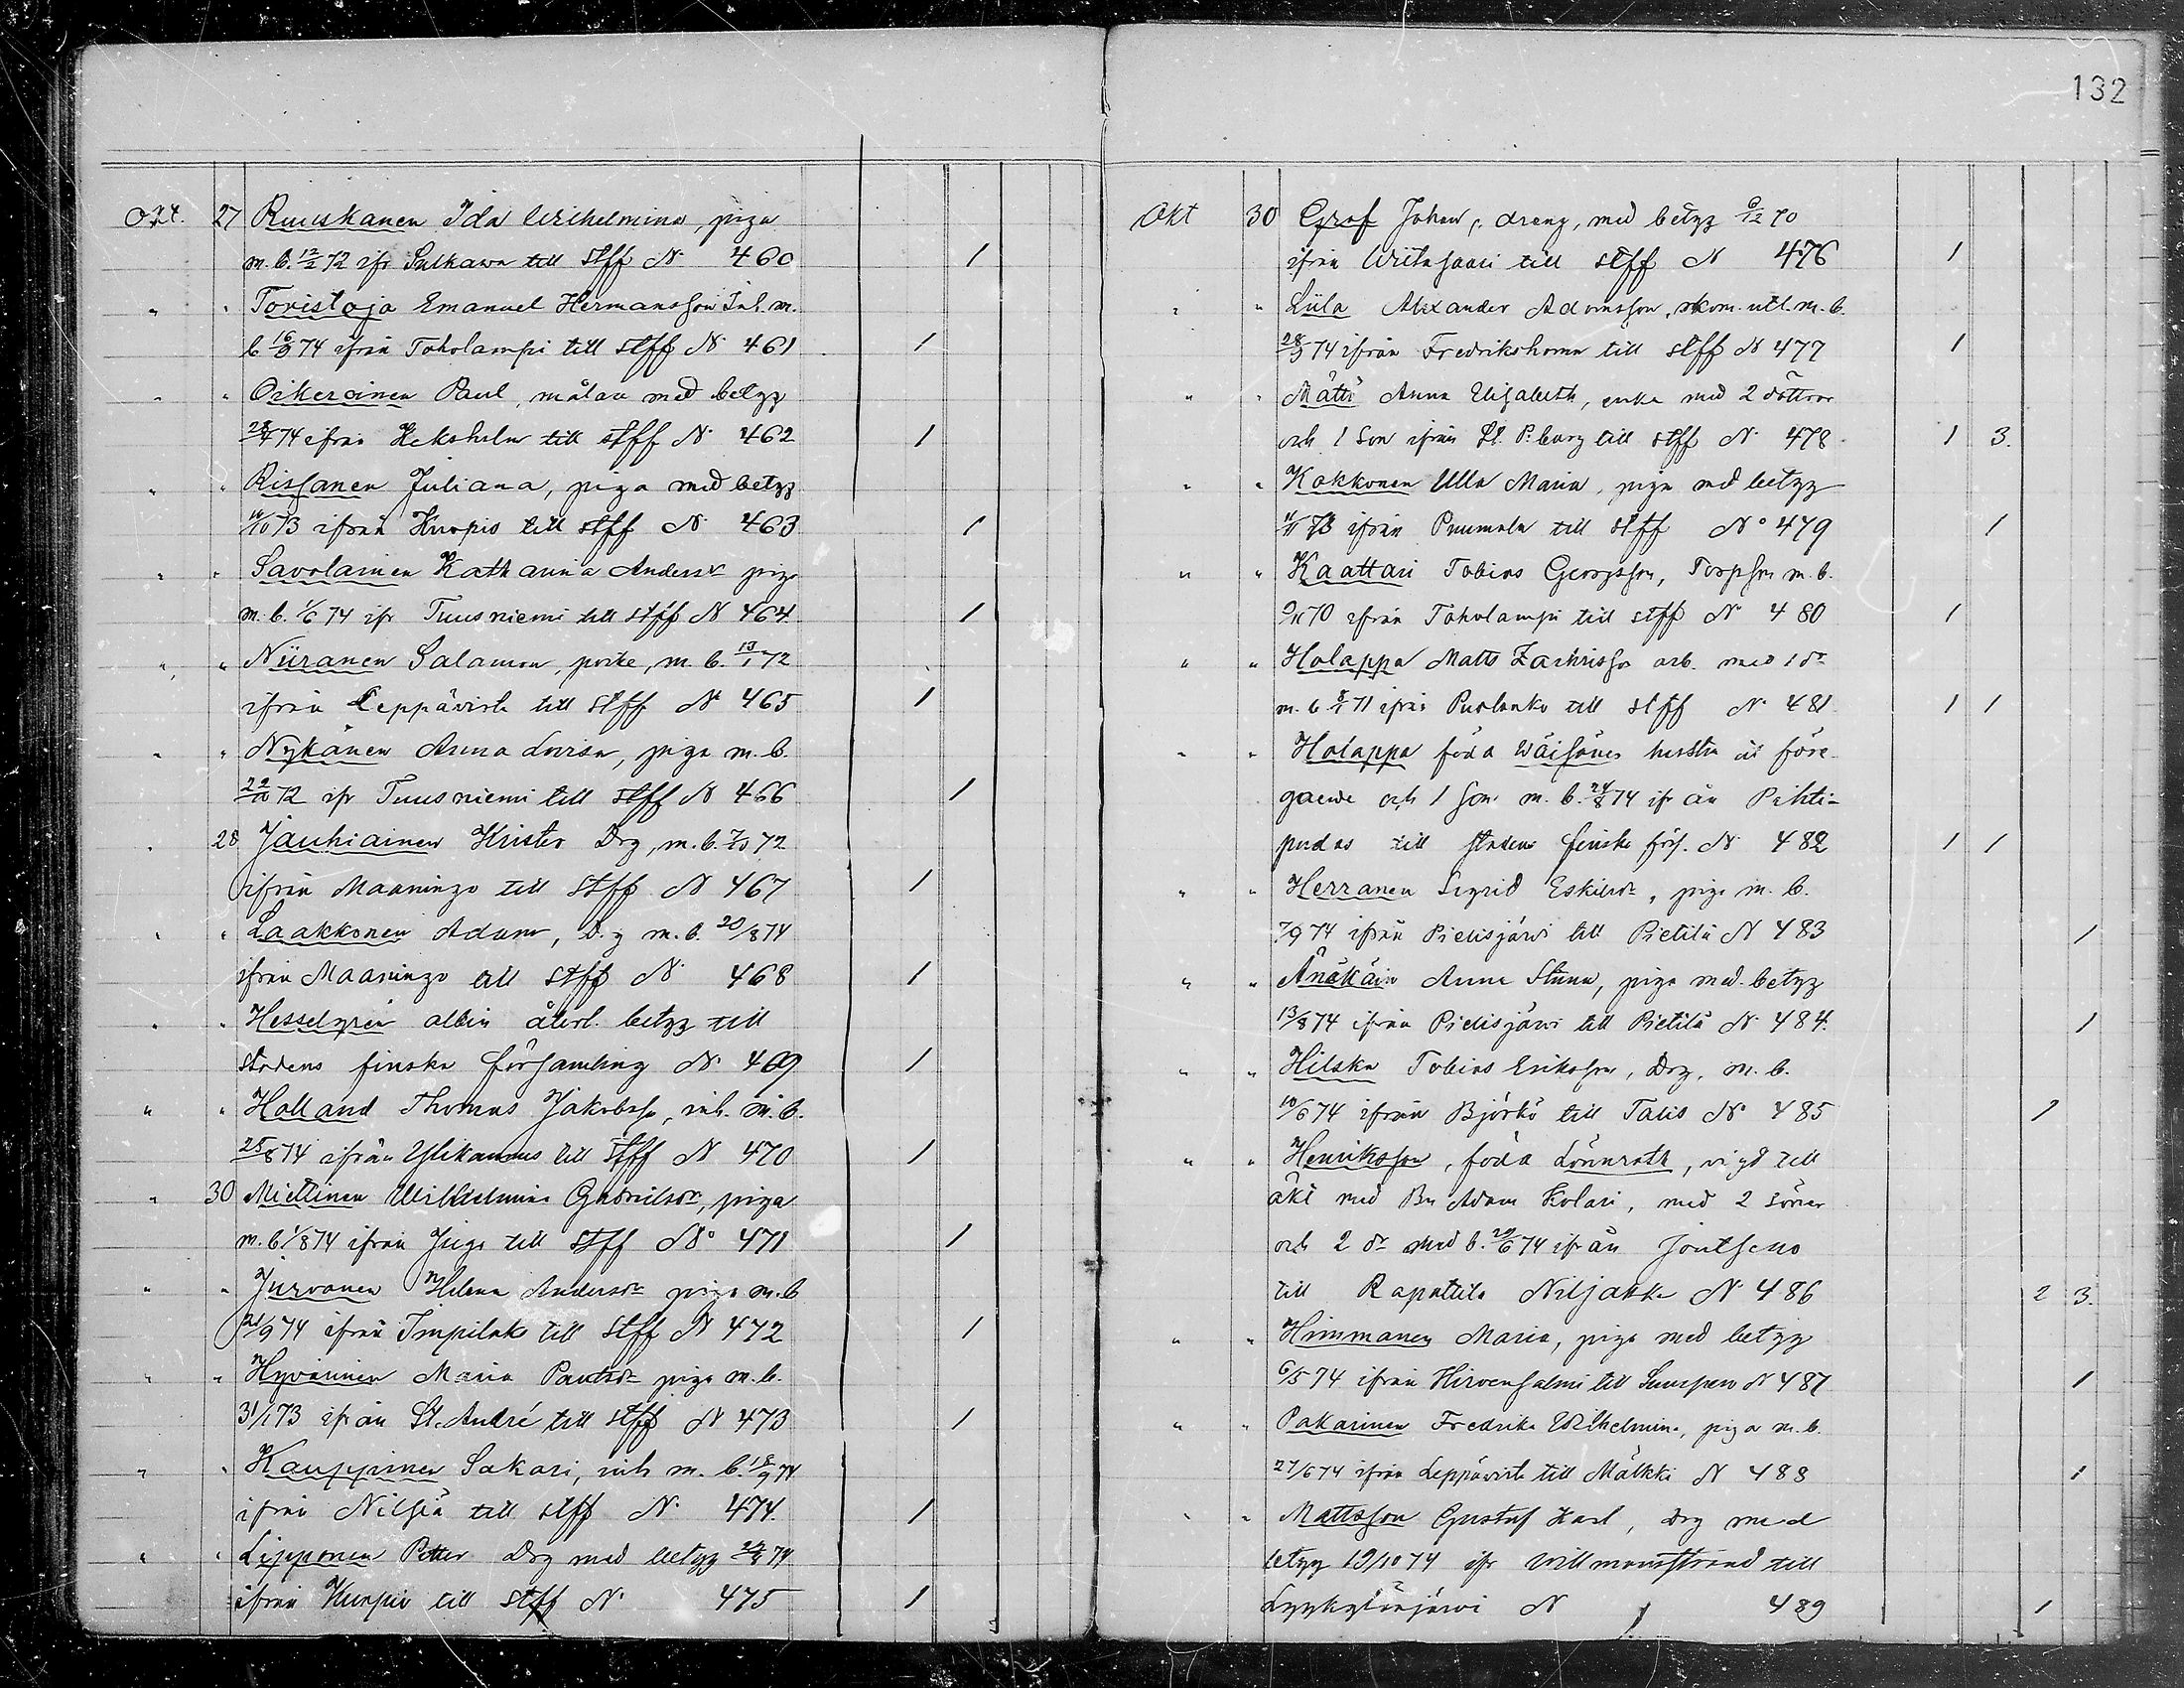 132
Okt. 27 Ruuskanen Ida Wilhelmina, piga
m. b. 12/2 72 ifr Sulkawa till Stff N. 460 1
" " Toristoja Emanuel Hermansson Inh. m.
b 16/9 74 ifrån Toholampi till stff N. 461 1
" " Oikerainen Paul, målare med betyg
74 ifrån Keksholm till stff N. 462 1
" " Rissanen Juliana, piga med betyg
73 ifrån Kuopio till stff N. 463 1
" " Savolainen Katharina Andersdr piga
m. b. 1/6 74 ifr Tuusniemi till stff N 464 1
" " Niiranen Salamon, poike, m. b. 13/1 72
ifrån Leppävirta till stff N. 465 1
" " Nykänen Anna Lovisa, piga m. b.
72 ifr Tuusniemi till stff N 466 1
" 28 Jauhiainen Krister Drg, m. b. 7/10 72
ifrån Maaninga till Stff N 467 1
" " Laakkonen Adam, D.g m. b. 20/8 74
ifrån Maaninga till stff N. 468 1
" " Hesselgren albin återl. betyg till
stadens finska församling N. 469 1
" " Holland Thomas Jakobss., inh. m. b.
25/8 74 ifrån Ylikannus till stff N 470 1
" 30 Miettinen Wilhelmina Gabrielsdr, piga
m. b. 1/8 74 ifrån Juga till stff No 471 1
" " Jurvanen Helena Andersdr piga m. b
21/9 74 ifrån Impilaks till stff N 472 1
" " Hyvärinen Maria Paulsdr piga m. b.
31/1 73 ifrån St. André till stff N 473 1
" " Kauppinen Sakari, inh m. b. 18/9 74
ifrån Nilsiä till stff N. 474. 1
" " Lipponen Petter Drg med betyg 74
ifrån Kuopio till stff N. 475 1
Okt 30 Graf Johan, dräng, med betyg 9/12 70
ifrån Wiitasaari till stff N 476 1
" " Liila Alexander Adamsson, skom. utl. m. b.
28/9 74 ifrån Fredrikshamn till stff N 477 1
" " Mättö Anna Elisabeth, enka med 2 döttrar
och 1 son ifrån St. P:burg till stff N. 478 1 3.
" " Kokkonen Ulla Maria, piga med betyg
73 ifrån Puumala till stff No 479 1
" " Kaattari Tobias Georgsson, Torpson m. b.
70 ifrån Toholampi till stff No 480 1
" " Holappa Matts Zachrisson arb. med 1 dr
m. b 71 ifrån Puolanko till stff N. 481 1 1
" " Holappa föda Wäisänen hustru åt före-
gående och 1 son m. b. 24/8 74 ifrån Pihti-
pudas till stadens finska förs. N. 482 1 1
" " Herranen Sigrid Eskilsdr, piga m. b.
7/9 74 ifrån Pielisjärvi till Pietilä N 483 1
" " Änäkäin Anna Stina, piga med betyg
13/8 74 ifrån Pielisjärvi till Pietilä N. 484. 1
" " Hilska Tobias Eriksson, Drg, m. b.
10/6 74 ifrån Björkö till Talis No 485 1
" " Henriksson, föda Lönnroth, vigd till
äkt med Bn Adam Kolari, med 2 söner
och 2 dr med b. 29/6 74 ifrån Joutseno
till Rapattila Niljakka N. 486 2 3.
" " Himmanen Maria, piga med betyg
6/5 74 ifrån Hirvensalmi till N 487 1
" " Pakarinen Fredrika Wilhelmina, piga m. b.
27/6 74 ifrån Leppävirta till Mälkki N 488 1
" " Mattsson Gustaf Karl, drg med
betyg 19/10 74 ifr Willmanstrand till
Lyykylänjärvi N 489 1